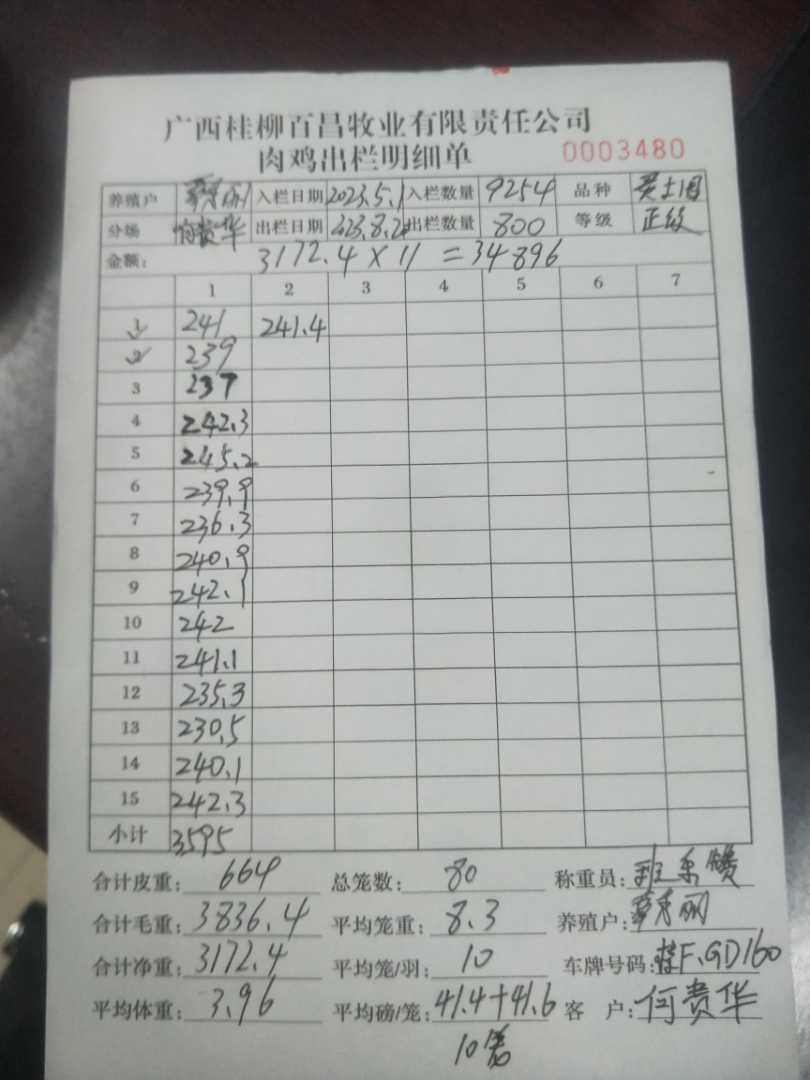 广西桂柳百昌牧业有限责任公司
肉鸡出栏明细单 0003480
养殖户 入栏日期 2023.5.1 入栏数量 9254 品种
分场 何贵华 出栏日期 出栏数量 800 等级 正级
金额: 3172.4 × 11 = 34896
1 2 3 4 5 6 7
1 241 241.4
2 239
3 237
4 242.3
5 245.2
6 239.9
7 236.3
8 240.9
9 242.1
10 242
11 241.1
12 235.3
13 230.5
14 240.1
15 242.3
小计 3595
合计皮重: 664 总笼数: 80 称重员:
合计毛重: 3836.4 平均笼重: 8.3 养殖户:
合计净重: 3172.4 平均笼/羽: 10 车牌号码: 桂F.GD160
平均体重: 3.96 平均磅/笼: 41.4+41.6 客 户: 何贵华